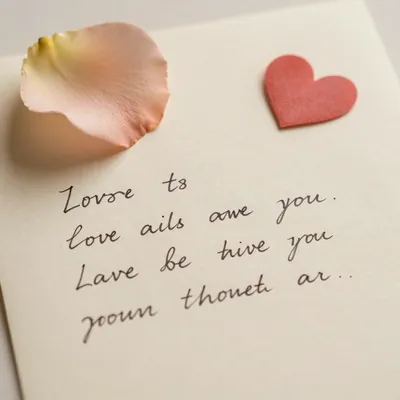 Lovre ts
love ails awe you.
Lave be hive you
yoown thonetr ar..